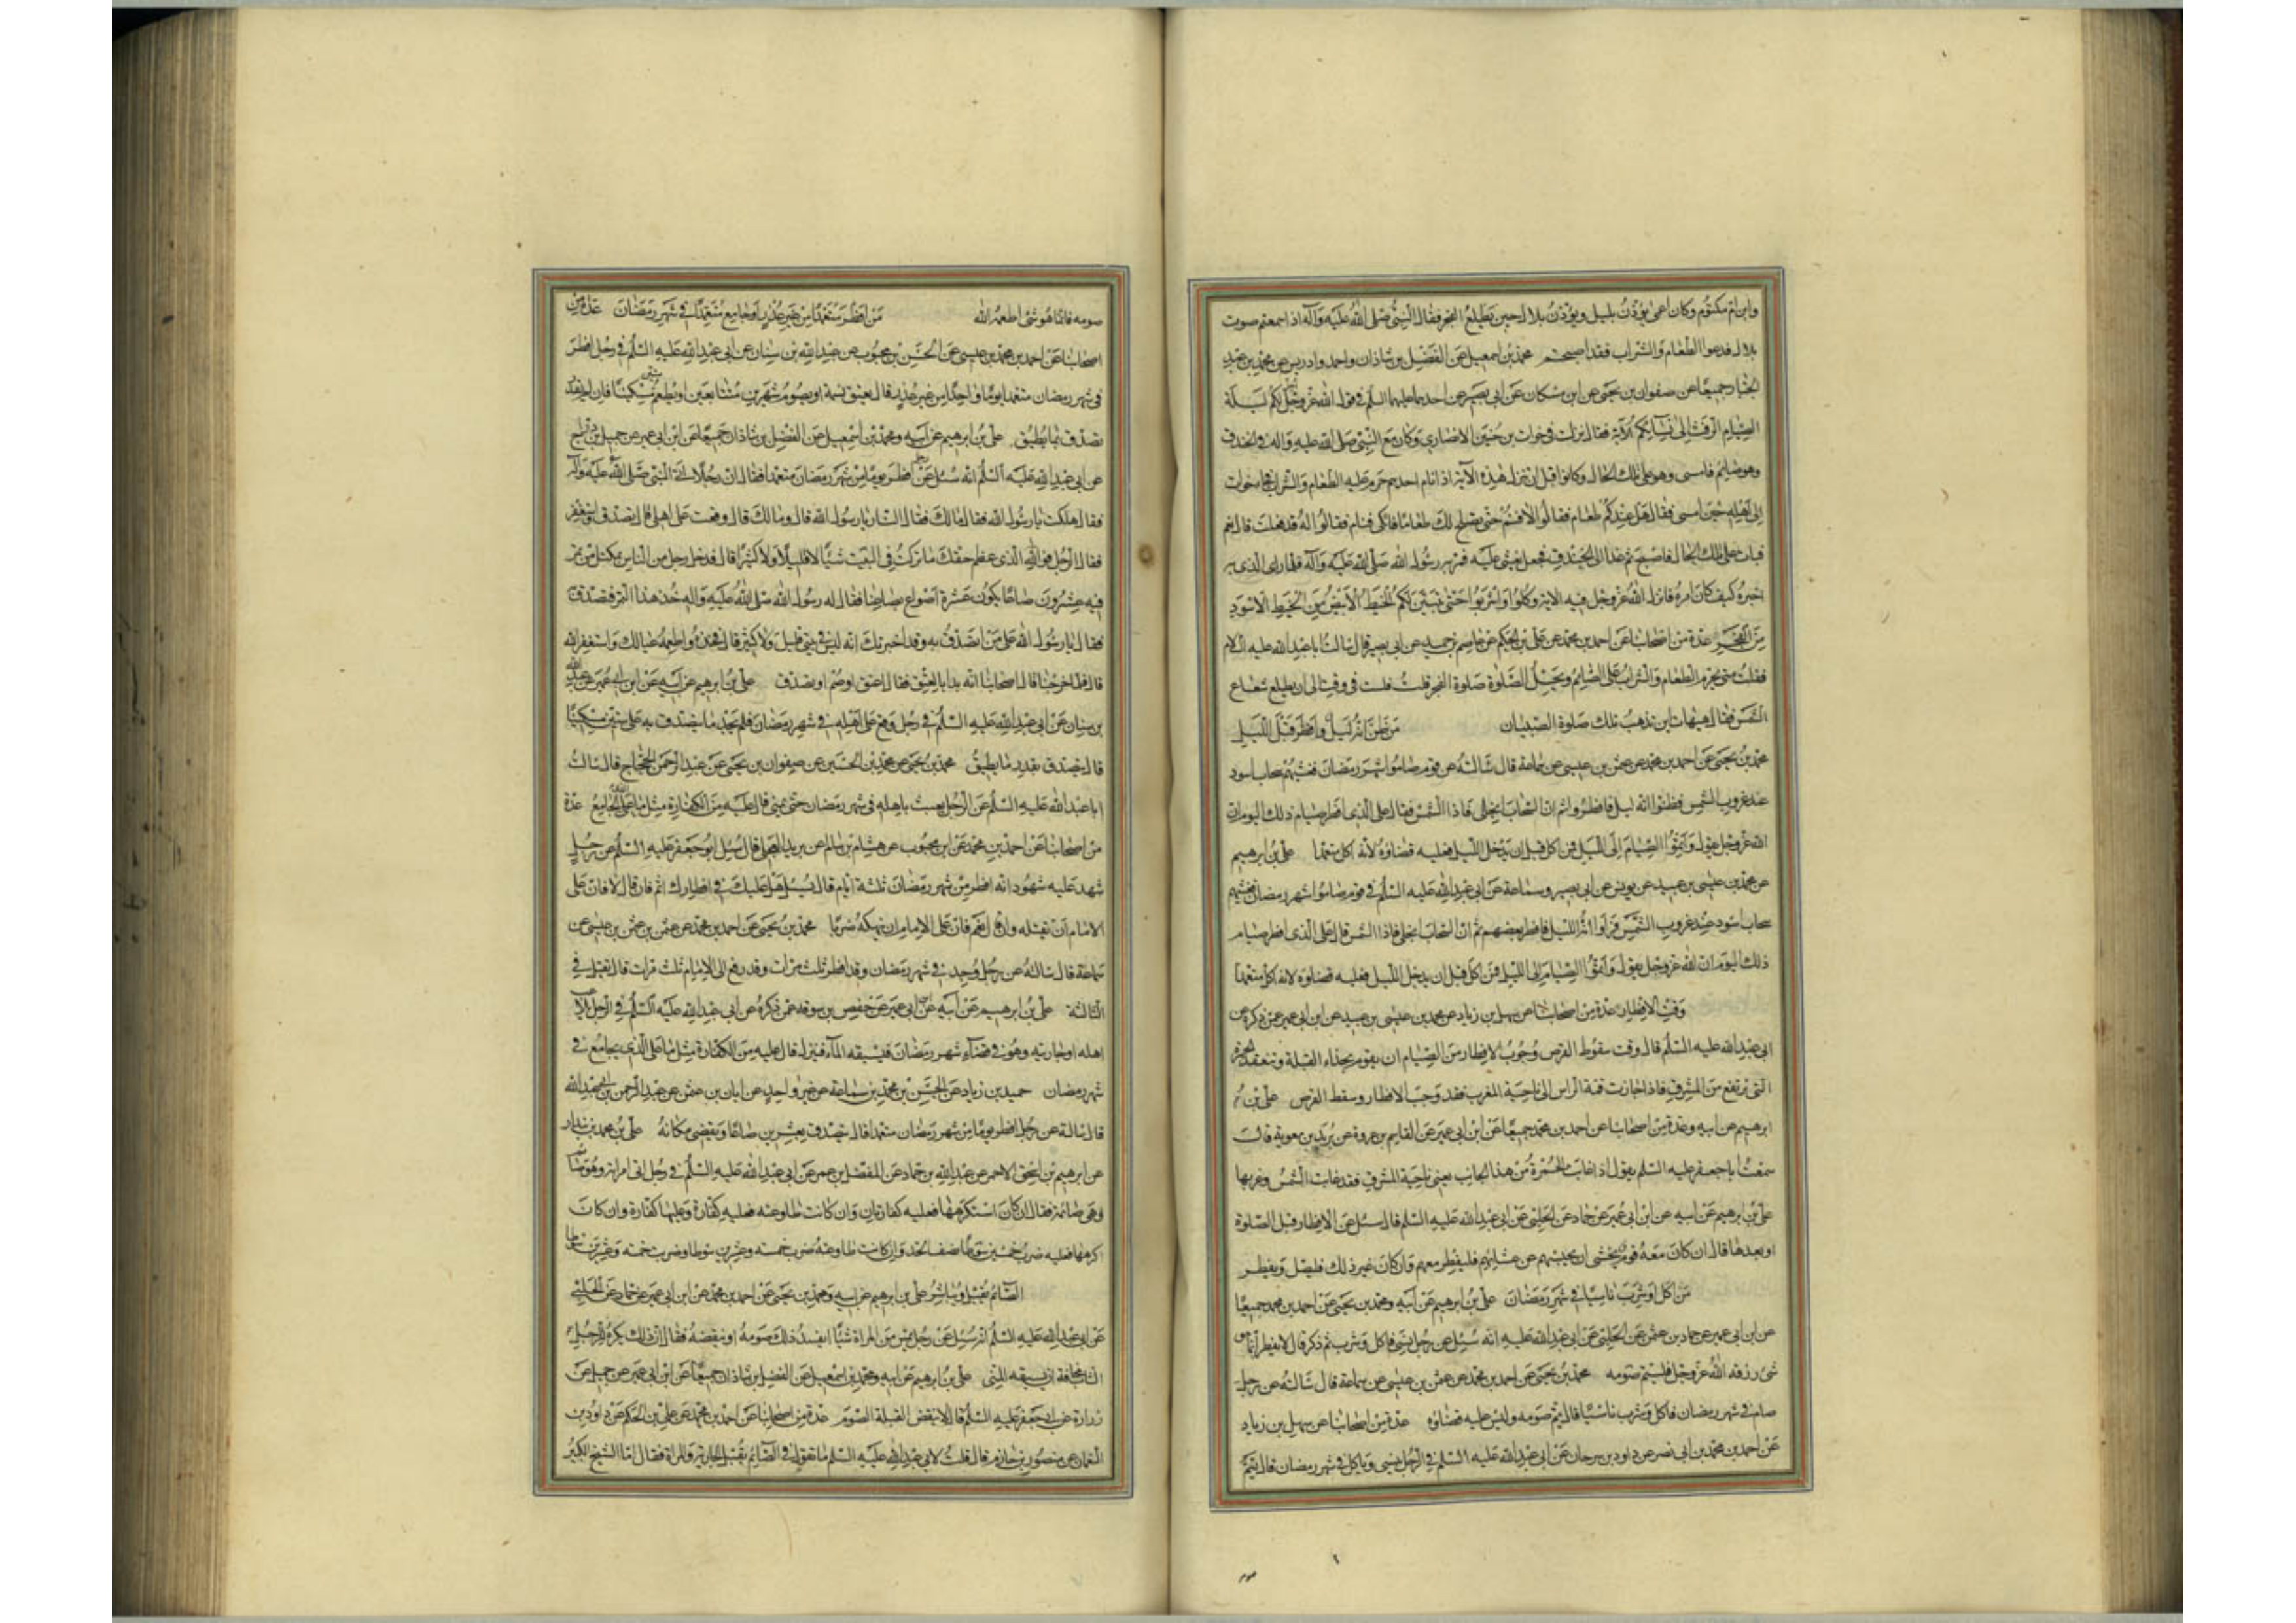 وابن ام مكتوم وكان اعمى يؤذن بليل ويؤذن بلال حين يطلع الفجر فقال النبي صلى الله عليه وآله اذا سمعتم صوت
بلال فدعوا الطعام والشراب فقد اصبحتم محمد بن اسمعيل عن الفضل بن شاذان واحمد وادريس عن محمد بن عبد
الجبار جميعا عن صفوان بن يحيى عن ابن مسكان عن ابي بصير عن احدهما عليهما السلم في قول الله عز وجل احل لكم ليلة
الصيام الرفث الى نسائكم الآية فقال نزلت في خوات بن جبير الانصاري وكان مع النبي صلى الله عليه واله في الخندق
وهو صائم فامسى وهو على تلك الحال وكانوا قبل ان تنزل هذه الآية اذا نام احدهم حرم عليه الطعام والشراب فجاء خوات
الى اهله حين امسى فقال هل عندكم طعام فقالوا لا فنم حتى نصلح لك طعاما فاتكى فنام فقالوا له قد فعلت قال نعم
فبات على تلك الحال فاصبح ثم غدا الى الخندق فجعل يغشى عليه فمر به رسول الله صلى الله عليه وآله فلما راى الذي به
اخبره كيف كان امره فانزل الله عز وجل فيه الاية وكلوا واشربوا حتى يتبين لكم الخيط الابيض من الخيط الاسود
من الفجر عدة من اصحابنا عن احمد بن محمد عن علي بن الحكم عن عاصم بن حميد عن ابي بصير قال سالت ابا عبد الله عليه السلام
فقلت متى يحرم الطعام والشراب على الصائم وتحل الصلوة صلوة الفجر قلت فلت في وقت الى ان يطلع شعاع
الشمس فقال هيهات اين تذهب تلك صلوة الصبيان من ظن انه ليل وافطر قبل الليل
محمد بن يحيى عن احمد بن محمد عن عثمن بن عيسى عن سماعة قال سالته عن قوم صاموا شهر رمضان فغشيهم سحاب اسود
عند غروب الشمس فظنوا انه ليل فافطروا ثم ان السحاب انجلى فاذا الشمس فقال على الذي افطر صيام ذلك اليوم ان
الله عز وجل يقول واتموا الصيام الى الليل فمن اكل قبل ان يدخل الليل فعليه قضاؤه لانه اكل متعمدا علي بن ابرهيم
عن محمد بن عيسى بن عبيد عن يونس عن ابي بصير وسماعة عن ابي عبد الله عليه السلم في قوم صاموا شهر رمضان فغشيهم
سحاب اسود عند غروب الشمس فراوا انه الليل فافطر بعضهم ثم ان السحاب انجلى فاذا الشمس قال على الذي افطر صيام
ذلك اليوم ان الله عز وجل يقول واتموا الصيام الى الليل فمن اكل قبل ان يدخل الليل فعليه قضاؤه لانه اكل متعمدا
وقت الافطار عدة من اصحابنا عن سهل بن زياد عن محمد بن عيسى بن عبيد عن ابن ابي عمير عمن ذكره عن
ابي عبد الله عليه السلم قال وقت سقوط القرص وجوب الافطار من الصيام ان يقوم بحذاء القبلة ويتفقد الحمرة
التي ترتفع من المشرق فاذا جازت قمة الراس الى ناحية المغرب فقد وجب الافطار وسقط القرص علي بن
ابرهيم عن ابيه وعدة من اصحابنا عن احمد بن محمد جميعا عن ابن ابي عمير عن القاسم بن عروة عن بريد بن معوية قال
سمعت ابا جعفر عليه السلم يقول اذا غابت الحمرة من هذا الجانب يعني ناحية المشرق فقد غابت الشمس وغربها
علي بن ابرهيم عن ابيه عن ابن ابي عمير عن حماد عن الحلبي عن ابي عبد الله عليه السلم قال سئل عن الافطار قبل الصلوة
او بعدها قال ان كان معه قوم يخشى ان يحبسهم عن عشائهم فليفطر معهم وان كان غير ذلك فليصل ويفطر
من اكل او شرب ناسيا في شهر رمضان علي بن ابرهيم عن ابيه ومحمد بن يحيى عن احمد بن محمد جميعا
عن ابن ابي عمير عن حماد بن عثمن عن الحلبي عن ابي عبد الله عليه انه سئل عن رجل نسي فاكل وشرب ثم ذكر قال لا يفطر انما هو
شئ رزقه الله عز وجل فليتم صومه محمد بن يحيى عن احمد بن محمد عن عثمن بن عيسى عن سماعة قال سالته عن رجل
صام في شهر رمضان فاكل وشرب ناسيا قال يتم صومه وليس عليه قضاؤه عدة من اصحابنا عن سهل بن زياد
عن احمد بن محمد بن ابي نصر عن داود بن سرحان عن ابي عبد الله عليه السلم في الرجل ينسى وياكل في شهر رمضان قال يتم
صوم
صومه فانما هو شئ اطعمه الله من افطر متعمدا من غير عذر او جامع متعمدا في شهر رمضان عدة من
اصحابنا عن احمد بن محمد بن عيسى عن الحسن بن محبوب عن عبد الله بن سنان عن ابي عبد الله عليه السلم في رجل افطر
في شهر رمضان متعمدا يوما واحدا من غير عذر قال يعتق نسمة او يصوم شهرين متتابعين او يطعم ستين مسكينا فان لم يقدر
تصدق بما يطيق علي بن ابرهيم عن ابيه ومحمد بن اسمعيل عن الفضل بن شاذان جميعا عن ابن ابي عمير عن جميل بن دراج
عن ابي عبد الله عليه السلم انه سئل عن رجل افطر يوما من شهر رمضان متعمدا فقال ان رجلا اتى النبي صلى الله عليه وآله
فقال هلكت يا رسول الله فقال مالك فقال النار يا رسول الله قال وما لك قال وقعت على اهلي قال تصدق واستغفر
فقال الرجل فوالذي عظم حقك ما تركت في البيت شيئا لا قليلا ولا كثيرا قال فدخل رجل من الناس بمكتل من تمر
فيه عشرون صاعا يكون عشرة اصوع بصاعنا فقال له رسول الله صلى الله عليه واله خذ هذا التمر فتصدق به
فقال يا رسول الله على من اتصدق به وقد اخبرتك انه ليس في بيتي قليل ولا كثير قال فخذه واطعمه عيالك واستغفر الله
قال فلما خرجنا قال اصحابنا انه بدا بالعتق فقال اعتق او صم او تصدق علي بن ابرهيم عن ابيه عن ابن ابي عمير عن عبد الله
بن سنان عن ابي عبد الله عليه السلم في رجل وقع على اهله في شهر رمضان فلم يجد ما يتصدق به على ستين مسكينا
قال يتصدق بقدر ما يطيق محمد بن يحيى عن محمد بن الحسين عن صفوان بن يحيى عن عبد الرحمن الحجاج قال سالت
ابا عبد الله عليه السلم عن الرجل يعبث باهله في شهر رمضان حتى يمني قال عليه من الكفارة مثل ما على الذي يجامع عدة
من اصحابنا عن احمد بن محمد عن ابن محبوب عن هشام بن سالم عن بريد العجلي قال سئل ابو جعفر عليه السلم عن رجل
شهد عليه شهود انه افطر من شهر رمضان ثلثة ايام قال يسئل هل عليك في افطارك اثم فان قال لا فان على
الامام ان يقتله وان قال نعم فان على الامام ان ينهكه ضربا محمد بن يحيى عن احمد بن محمد عن عثمن بن عثمن بن عيسى عن
سماعة قال سالته عن رجل وجد في شهر رمضان وقد افطر ثلث مرات وقد رفع الى الامام ثلث مرات قال يقتل في
الثالثة علي بن ابرهيم عن ابيه عن ابن ابي عمير عن حفص بن سوقة عمن ذكره عن ابي عبد الله عليه السلم في الرجل يلاعب
اهله او جاريته وهو في قضاء شهر رمضان فيسبقه الماء فينزل قال عليه من الكفارة مثل ما على الذي يجامع في
شهر رمضان حميد بن زياد عن الحسن بن محمد بن سماعة عن غير واحد عن ابان بن عثمن عن عبد الرحمن بن ابي عبد الله
قال سالته عن رجل افطر يوما من شهر رمضان متعمدا قال يتصدق بعشرين صاعا ويقضي مكانه علي بن محمد بن بندار
عن ابرهيم بن اسحق الاحمر عن عبد الله بن حماد عن المفضل بن عمر عن ابي عبد الله عليه السلم في رجل اتى امراته وهو صائم
وهي صائمة فقال ان كان استكرهها فعليه كفارتان وان كانت طاوعته فعليه كفارة وعليها كفارة وان كان
اكرهها فعليه ضرب خمسين سوطا نصف الحد وان كانت طاوعته ضرب خمسة وعشرين سوطا وضربت خمسة وعشرين سوطا
الصائم يقبل او يباشر علي بن ابرهيم عن ابيه ومحمد بن يحيى عن احمد بن محمد عن ابن ابي عمير عن حماد عن الحلبي
عن ابي عبد الله عليه السلم انه سئل عن رجل يمس من المراة شيئا ايفسد ذلك صومه او ينقضه فقال ان ذلك يكره للرجل
الشاب مخافة ان يسبقه المني علي بن ابرهيم عن ابيه ومحمد بن اسمعيل عن الفضل بن شاذان جميعا عن ابن ابي عمير عن جميل عن
زرارة عن ابي جعفر عليه السلم قال لا تنقض القبلة الصوم عدة من اصحابنا عن احمد بن محمد عن علي بن الحكم عن داود بن
النعمان عن منصور بن حازم قال قلت لابي عبد الله عليه السلم ما تقول في الصائم يقبل الجارية والمراة فقال اما الشيخ الكبير